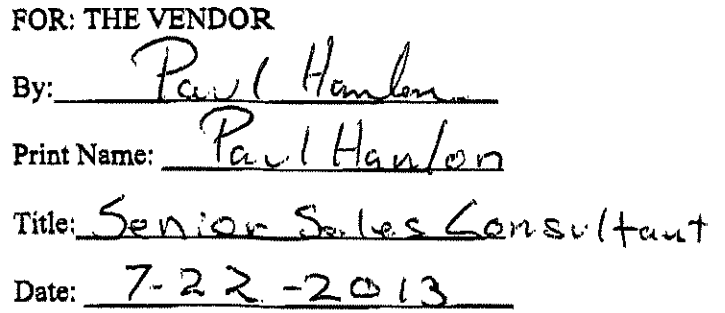 FOR: THE VENDOR
By: Paul Hanlon
Print Name: Paul Hanlon
Title: Senior Sales Consultant
Date: 7-22-2013